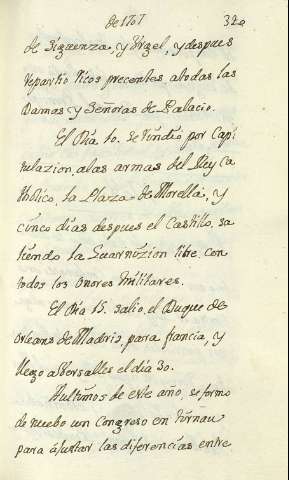 de 1707
320
de Siguenza y Urgel, y despues
repartio ricos precentes a todas las
Damas y Señoras de Palacio.
El Dia 10. se rindio por Capi
tulazion, a las armas del Rey Ca
tholico, la Plaza de Morella, y
cinco dias despues el Castillo, sa
liendo la Guarnizion libre con
todos los onores militares.
El Dia 15. salio el Duque de
Orleans de Madrid, para francia, y
llego a Versalles el dia 30.
A ultimos de este año, se formo
de nuebo un Congreso en Tirnau
para ajustar las diferencias entre